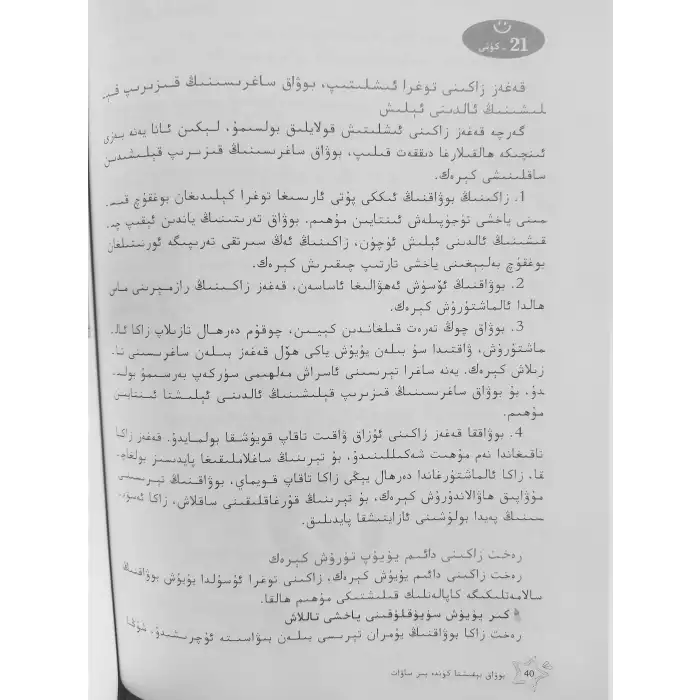 21 - كۈنى
قەغەز زاكىنى توغرا ئىشلىتىپ، بوۋاق ساغرىسىنىڭ قىزىرىپ قې-
لىشىنىڭ ئالدىنى ئېلىش
گەرچە قەغەز زاكىنى ئىشلىتىش قولايلىق بولسىمۇ، لېكىن ئانا يەنە بەزى
ئىنچىكە ھالقىلارغا دىققەت قىلىپ، بوۋاق ساغرىسىنىڭ قىزىرىپ قېلىشىدىن
ساقلىنىشى كېرەك.
1. زاكىنىڭ بوۋاقنىڭ ئىككى پۇتى ئارىسىغا توغرا كېلىدىغان بوغقۇچ قىس-
مىنى ياخشى تۈجۈپىلەش ئىنتايىن مۇھىم. بوۋاق تەرىتىنىڭ ياندىن ئېقىپ چە-
قىشىنىڭ ئالدىنى ئېلىش ئۈچۈن، زاكىنىڭ ئەڭ سىرتقى تەرىپىگە ئورنىتىلغان
بوغقۇچ بەلبېغىنى ياخشى تارتىپ چىقىرىش كېرەك.
2. بوۋاقنىڭ ئۆسۈش ئەھۋالىغا ئاساسەن، قەغەز زاكىنىڭ رازمېرىنى ماس
ھالدا ئالماشتۇرۇش كېرەك.
3. بوۋاق چوڭ تەرەت قىلغاندىن كېيىن، چوقۇم دەرھال تازىلاپ زاكا ئال-
ماشتۇرۇش، ۋاقتىدا سۇ بىلەن يۇيۇش ياكى ھۆل قەغەز بىلەن ساغرىسىنى تا-
زىلاش كېرەك. يەنە ساغرا تېرىسىنى ئاسراش مەلھىمى سۈركەپ بەرسىمۇ بولى-
دۇ. بۇ بوۋاق ساغرىسىنىڭ قىزىرىپ قېلىشىنىڭ ئالدىنى ئېلىشتا ئىنتايىن
مۇھىم.
4. بوۋاققا قەغەز زاكىنى ئۇزاق ۋاقىت تاقاپ قويۇشقا بولمايدۇ. قەغەز زاكا
تاقىغاندا نەم مۇھىت شەكىللىنىدۇ، بۇ تېرىنىڭ ساغلاملىقىغا پايدىسىز بولغاچ-
قا، زاكا ئالماشتۇرغاندا دەرھال يېڭى زاكا تاقاپ قويماي، بوۋاقنىڭ تېرىسىنى
مۇۋاپىق ھاۋالاندۇرۇش كېرەك، بۇ تېرىنىڭ قۇرغاقلىقىنى ساقلاش، زاكا ئەسۋە-
سىنىڭ پەيدا بولۇشىنى ئازايتىشقا پايدىلىق.
رەخت زاكىنى دائىم يۇيۇپ تۇرۇش كېرەك
رەخت زاكىنى دائىم يۇيۇش كېرەك، زاكىنى توغرا ئۇسۇلدا يۇيۇش بوۋاقنىڭ
سالامەتلىكىگە كاپالەتلىك قىلىشتىكى مۇھىم ھالقا.
كىر يۇيۇش سۇيۇقلۇقىنى ياخشى تاللاش
رەخت زاكا بوۋاقنىڭ يۇمران تېرىسى بىلەن بىۋاسىتە ئۇچرىشىدۇ. شۇڭا
40 بوۋاق بېقىشتا كۈندە بىر ساۋات